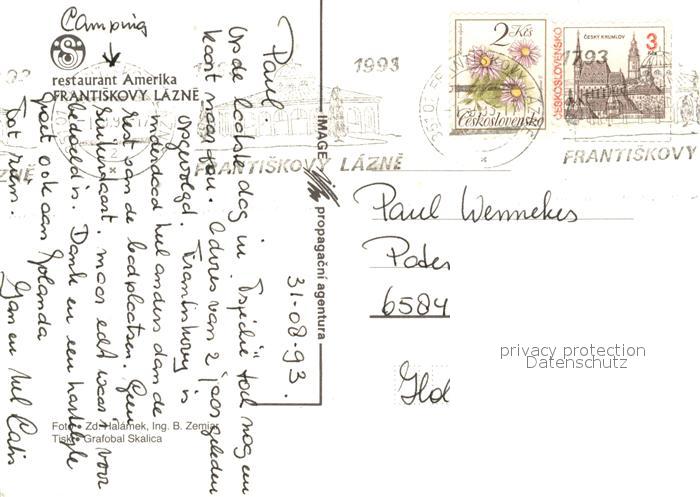 Camping
restaurant Amerika
FRANTIŠKOVY LÁZNĚ
Paul
Op de laatste dag in "Tsjechië" toch nog een
kaart naar jou. Advies van 2 jaar geleden
opgevolgd. Frantiskovy is
inderdaad heel anders dan de
rest van de badplaatsen. Geen
restaurant, maar echt waar 't voor
bedoeld is. Dank en een hartelijke
groet ook aan Yolanda
Tot ziens.
Jan en
31-08-93.
Foto: Zd. Halámek, Ing. B. Zemiar
Tisk: Grafobal Skalica
IMAGE propagační agentura
1993
FRANTIŠKOVY LÁZNĚ
2 Kčs
Československo
ČESKÝ KRUMLOV
3 Kčs
ČESKOSLOVENSKO
1793
FRANTIŠKOVY
Paul Wennekes
6584
Hol
privacy protection
Datenschutz